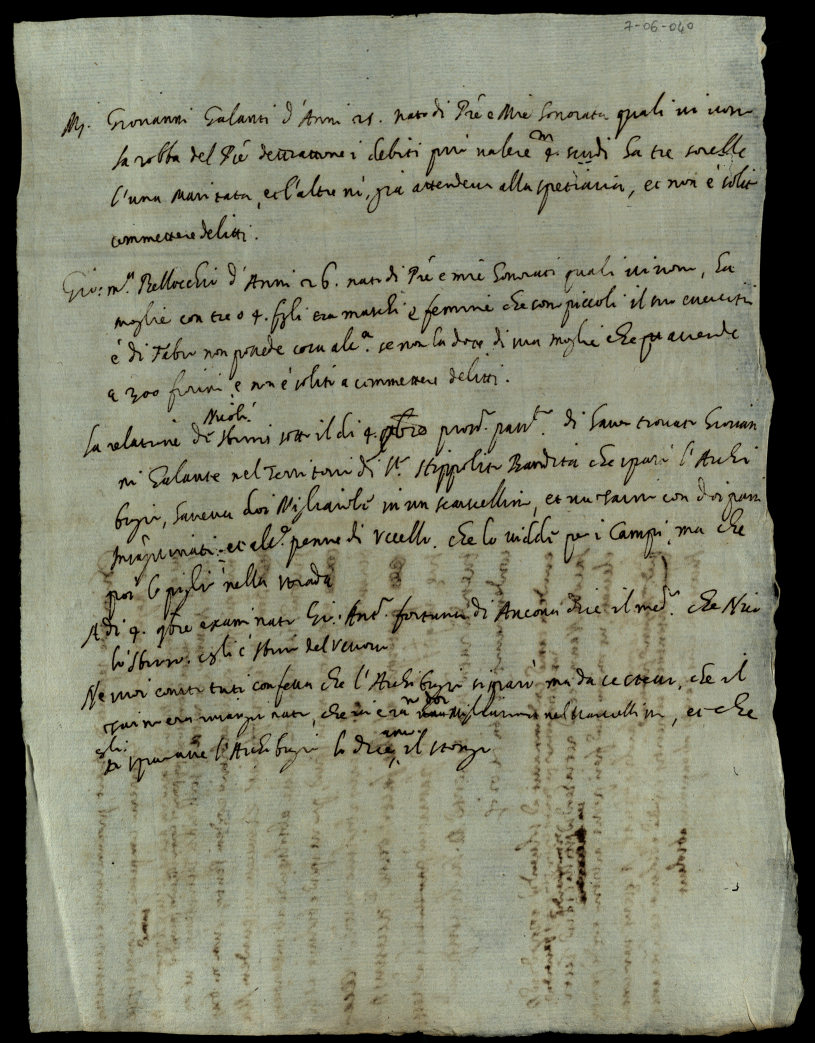 7-06-040
M. Giovanni Galanti d'Anni 25. nato di Pre e Mre honorata quali vivon
la robba del Pre detrattone i debiti può valere 4 m scudi ha tre sorelle
l'una maritata, et l'altre nò, già attendeva alla spetiaria, et non è solit
commettere delitti.
Gio: Mª Bellocchio d'Anni 26. nato di Pre e mre honorati quali vivono, ha
moglie con tre o 4. figli tra maschi e femine che son piccoli il suo exercitio
è di Fabro non possede cosa alcª. se non la dote di sua moglie che
a 300 fiorini, e non è solito a commettere delitti.
La relatione de Nicolò sbirro sotto il dì 4. di haver trovato Giovan
ni Galante nel Territorio di Sto. Hippolito Bandita che sparò l'Archi
bugio, haveva doi Migliaiole in un scarsellino, et con doi
insanguinati et alcª. penne di Uccello. che lo vidde per i Campi, ma che
poi lo pigliò nella strada
A di 4. 9bre examinato Gio: Antº. fortuna di Ancona dice il medº. che Nico
lò sbirro. egli è sbirro del
Ne suoi constituti confessa che l'Archibugio si sparò ma da se stesso, che il
era insanguinato, che vi eran nel scarsellino, et che
egli sparasse l'Archibugio lo dice anco il